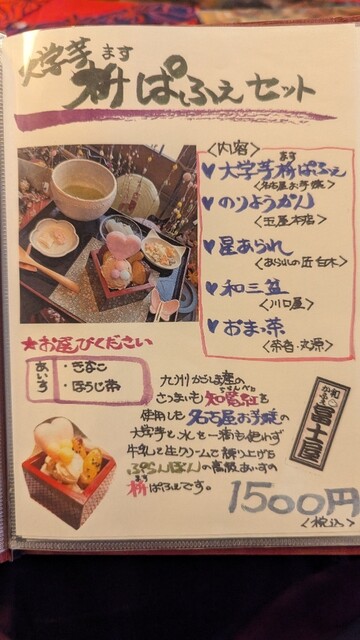 大学芋
ます
枡ぱふぇセット
<内容>
ます
♥大学芋枡ぱふぇ
<名古屋お芋様>
♥のりようかん
<玉屋本店>
♥星あられ
<あられの匠 白木>
♥和三盆
<川口屋>
♥おまっ茶
<茶舎・火源>
★お選びください
あいす
・きなこ
・ほうじ茶
九州かごしま産の
さつまいも知覧紅を
使用した名古屋お芋様の
大学芋と水を一滴も使わず
牛乳と生クリームで練り上げる
高級あいすの
ます
枡ぱふぇです。
冨士屋
1500円
<税込>